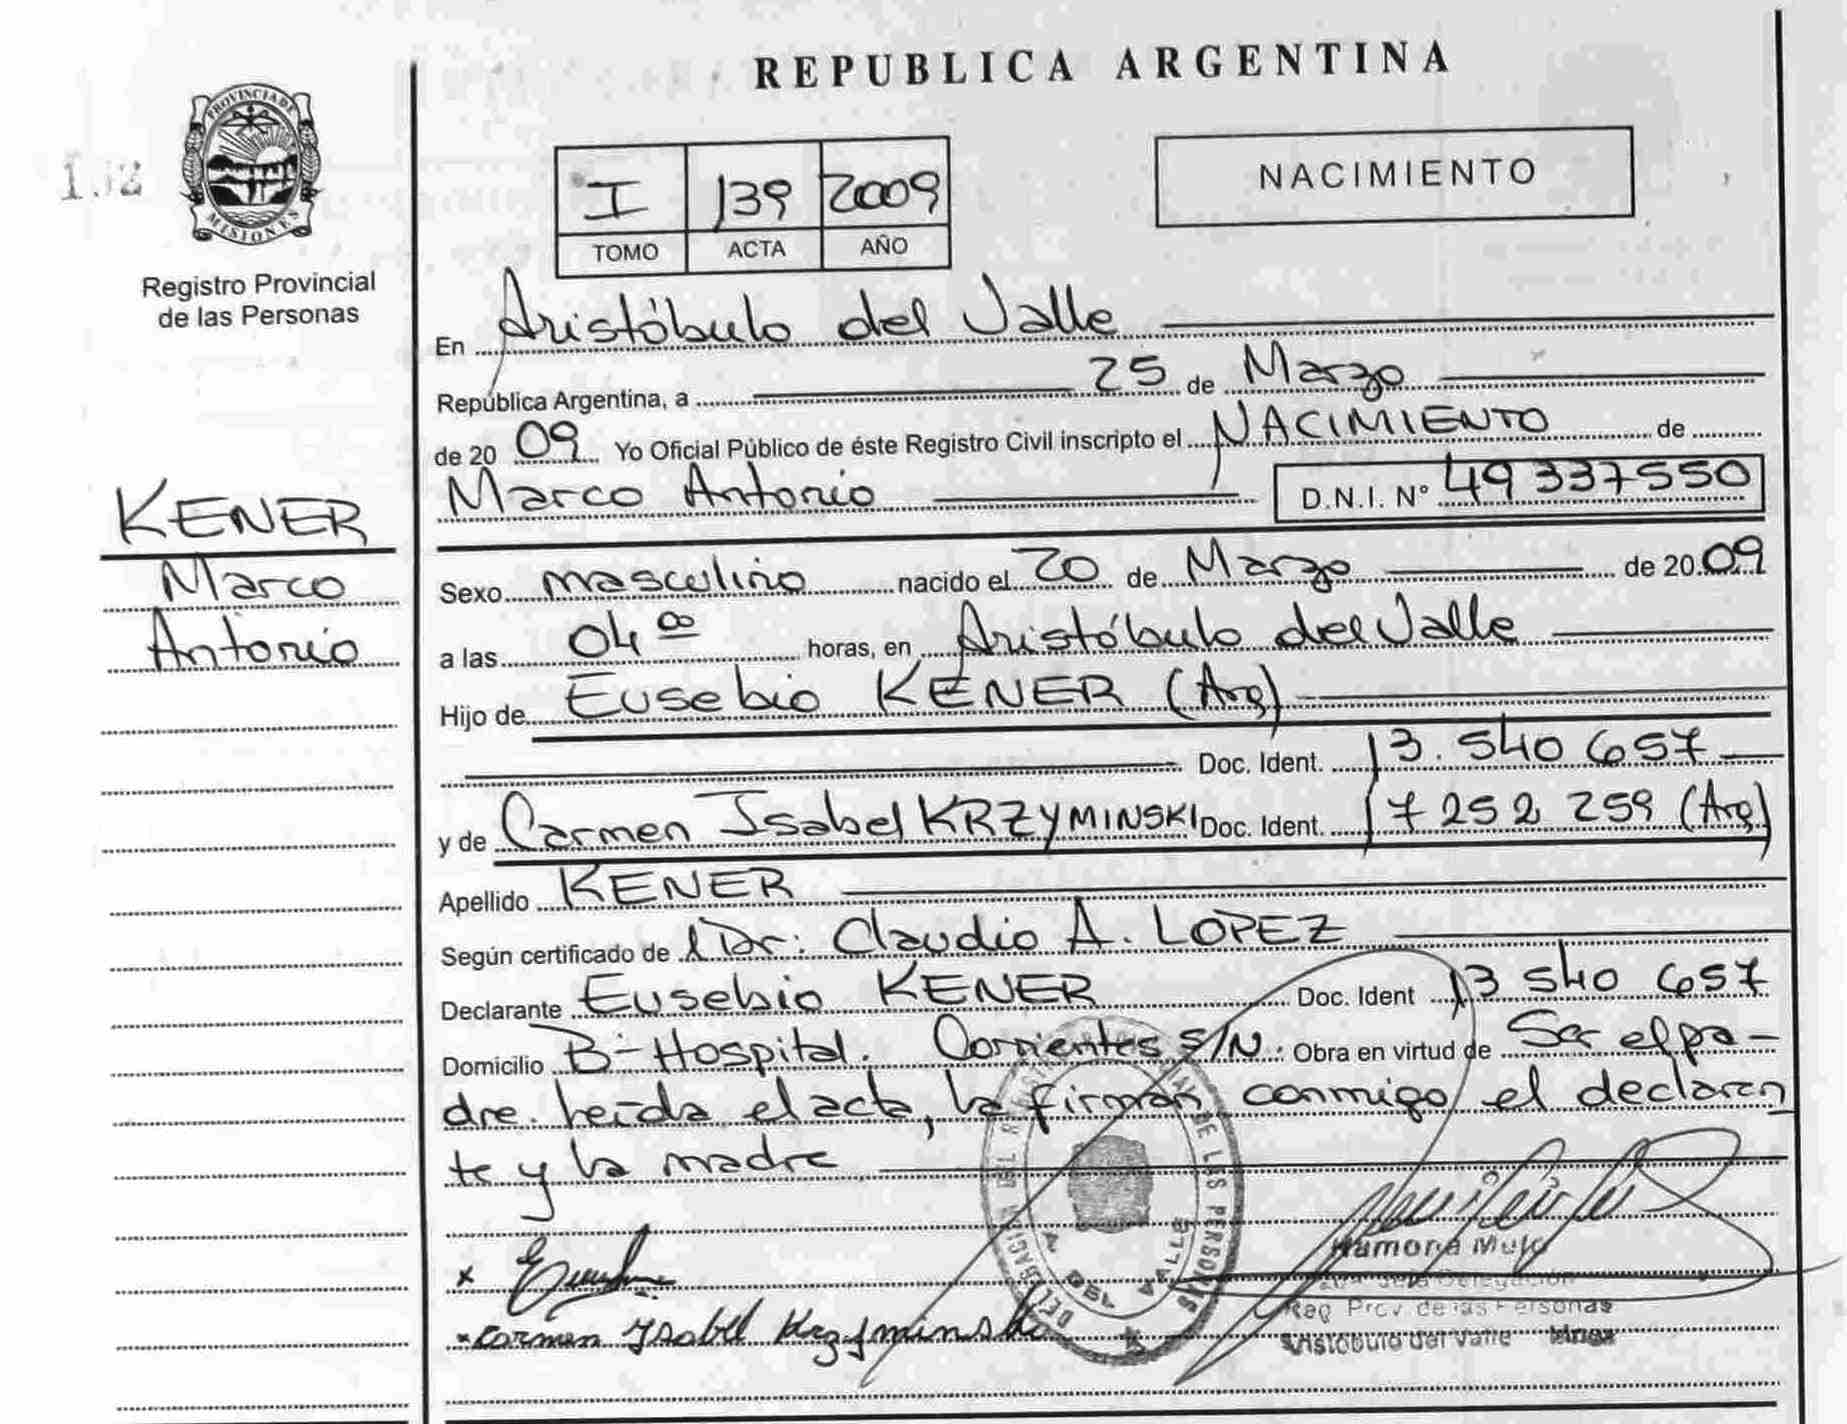 REPUBLICA ARGENTINA
PROVINCIA DE
MISIONES
Registro Provincial
de las Personas
I 139 2009
TOMO ACTA AÑO
NACIMIENTO
KENER
Marco
Antonio
En Aristóbulo del Valle
República Argentina, a 25 de Marzo
de 20 09 Yo Oficial Público de éste Registro Civil inscripto el NACIMIENTO de
Marco Antonio D.N.I. N° 49 337550
Sexo masculino nacido el 20 de Marzo de 20 09
a las 04 00 horas, en Aristóbulo del Valle
Hijo de Eusebio KENER (Arg)
Doc. Ident. 13.540 657
y de Carmen Isabel KRZYMINSKI Doc. Ident. 17 252 259 (Arg)
Apellido KENER
Según certificado de Dr: Claudio A. LOPEZ
Declarante Eusebio KENER Doc. Ident 13 540 657
Domicilio B- Hospital. Corrientes S/N. Obra en virtud de Ser el pa-
dre. Leída el acta, la firman conmigo el declaran
te y la madre
DE LAS PERSONAS
A. DEL VALLE
x
x Carmen Ysabel Krzyminski
Ramona
Delegación
Reg. Prov. de las Personas
Aristobulo del Valle